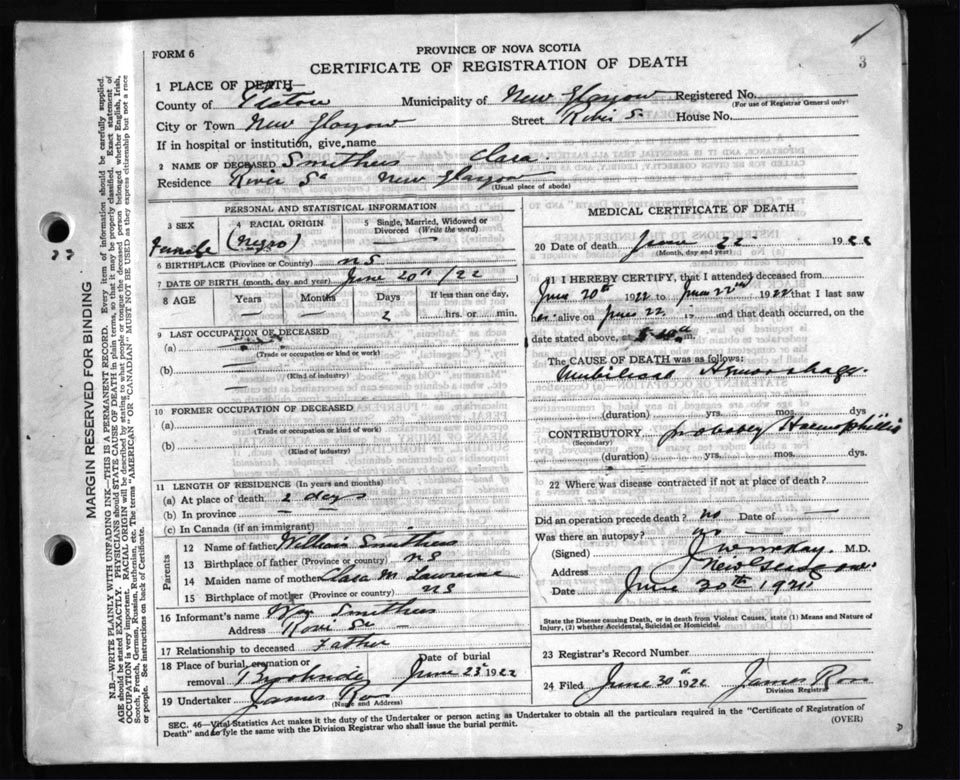 FORM 6
PROVINCE OF NOVA SCOTIA
CERTIFICATE OF REGISTRATION OF DEATH
3
1 PLACE OF DEATH
County of Pictou Municipality of New Glasgow Registered No.
(For use of Registrar General only)
City or Town New Glasgow Street River St House No.
If in hospital or institution, give name
2 NAME OF DECEASED Smithers Clara.
Residence River St New Glasgow
(Usual place of abode)
PERSONAL AND STATISTICAL INFORMATION
3 SEX 4 RACIAL ORIGIN 5 Single, Married, Widowed or Divorced (Write the word)
Female (Negro) —
6 BIRTHPLACE (Province or Country) NS
7 DATE OF BIRTH (month, day and year) June 20th /22
8 AGE Years Months Days If less than one day,
— — 2 hrs. or min.
9 LAST OCCUPATION OF DECEASED
(a)
(Trade or occupation or kind or work)
(b)
(Kind of industry)
10 FORMER OCCUPATION OF DECEASED
(a)
(Trade or occupation or kind of work)
(b)
(Kind of industry)
11 LENGTH OF RESIDENCE (In years and months)
(a) At place of death 2 days
(b) In province — —
(c) In Canada (if an immigrant)
Parents
12 Name of father William Smithers
13 Birthplace of father (Province or country) NS
14 Maiden name of mother Clara M Lawrence
15 Birthplace of mother (Province or country) NS
16 Informant's name Wm Smithers
Address River St
17 Relationship to deceased Father
18 Place of burial, cremation or removal Brookside Date of burial June 23d 1922
19 Undertaker James Ross
(Name and Address)
MEDICAL CERTIFICATE OF DEATH
20 Date of death June 22 1922
(Month, day and year)
21 I HEREBY CERTIFY, that I attended deceased from
June 20th 1922 to June 22nd 1922 that I last saw
her alive on June 22 19 and that death occurred, on
date stated above, at m.
The CAUSE OF DEATH was as follows:
Umbilical Hemorrhage.
(duration) yrs. mos. dys
CONTRIBUTORY probably Haemophillis
(Secondary)
(duration) yrs. mos. dys.
22 Where was disease contracted if not at place of death?
Did an operation precede death? no Date of —
Was there an autopsy? no
(Signed) M.D.
Address New Glasgow
Date June 30th 192
State the Disease causing Death, or in death from Violent Causes, state (1) Means and Nature of Injury, (2) whether Accidental, Suicidal or Homicidal.
23 Registrar's Record Number
24 Filed June 30th 1922 James Ross
Division Registrar
SEC. 46—Vital Statistics Act makes it the duty of the Undertaker or person acting as Undertaker to obtain all the particulars required in the "Certificate of Registration of
Death" and to fyle the same with the Division Registrar who shall issue the burial permit.
(OVER)
MARGIN RESERVED FOR BINDING
N.B.—WRITE PLAINLY WITH UNFADING INK—THIS IS A PERMANENT RECORD. Every item of information should be carefully supplied.
AGE should be stated EXACTLY. PHYSICIANS should STATE CAUSE OF DEATH in plain terms, so that it may be properly classified. Exact statement of
OCCUPATION is very important. RACIAL ORIGIN will be described by stating to what people or tongue the deceased person belonged whether English, Irish,
Scotch, French, German, Russian, Ruthenian, etc. The terms "AMERICAN" OR "CANADIAN" MUST NOT BE USED as they express citizenship but not a race
or people. See instructions on back of Certificate.